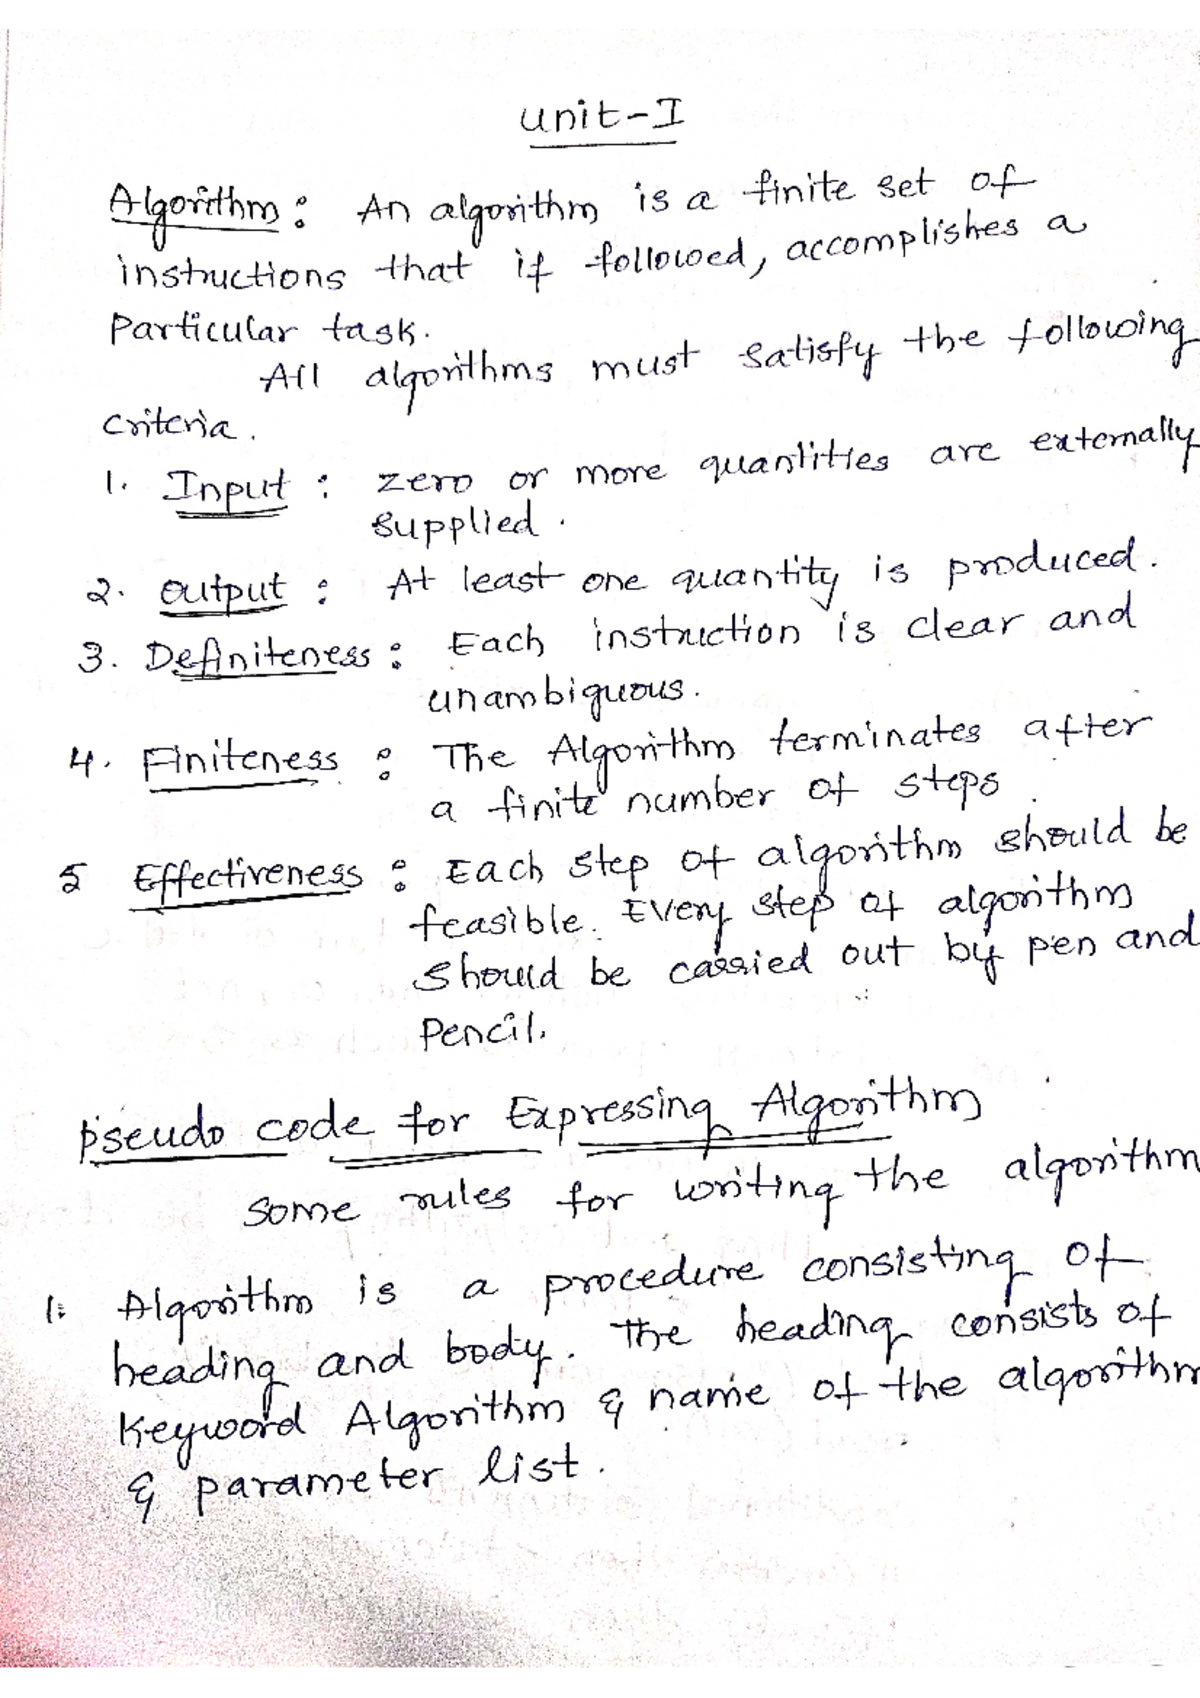 Unit-I
Algorithm: An algorithm is a finite set of
instructions that if followed, accomplishes a
Particular task.
All algorithms must satisfy the following
criteria.
1. Input : zero or more quantities are externally
supplied.
2. output : At least one quantity is produced.
3. Definiteness : Each instruction is clear and
unambiguous.
4. Finiteness : The Algorithm terminates after
a finite number of steps.
5 Effectiveness : Each step of algorithm should be
feasible. Every step of algorithm
should be carried out by pen and
Pencil.
Pseudo code for Expressing Algorithm
Some rules for writing the algorithm
1: Algorithm is a procedure consisting of
heading and body. The heading consists of
Keyword Algorithm & name of the algorithm
& parameter list.